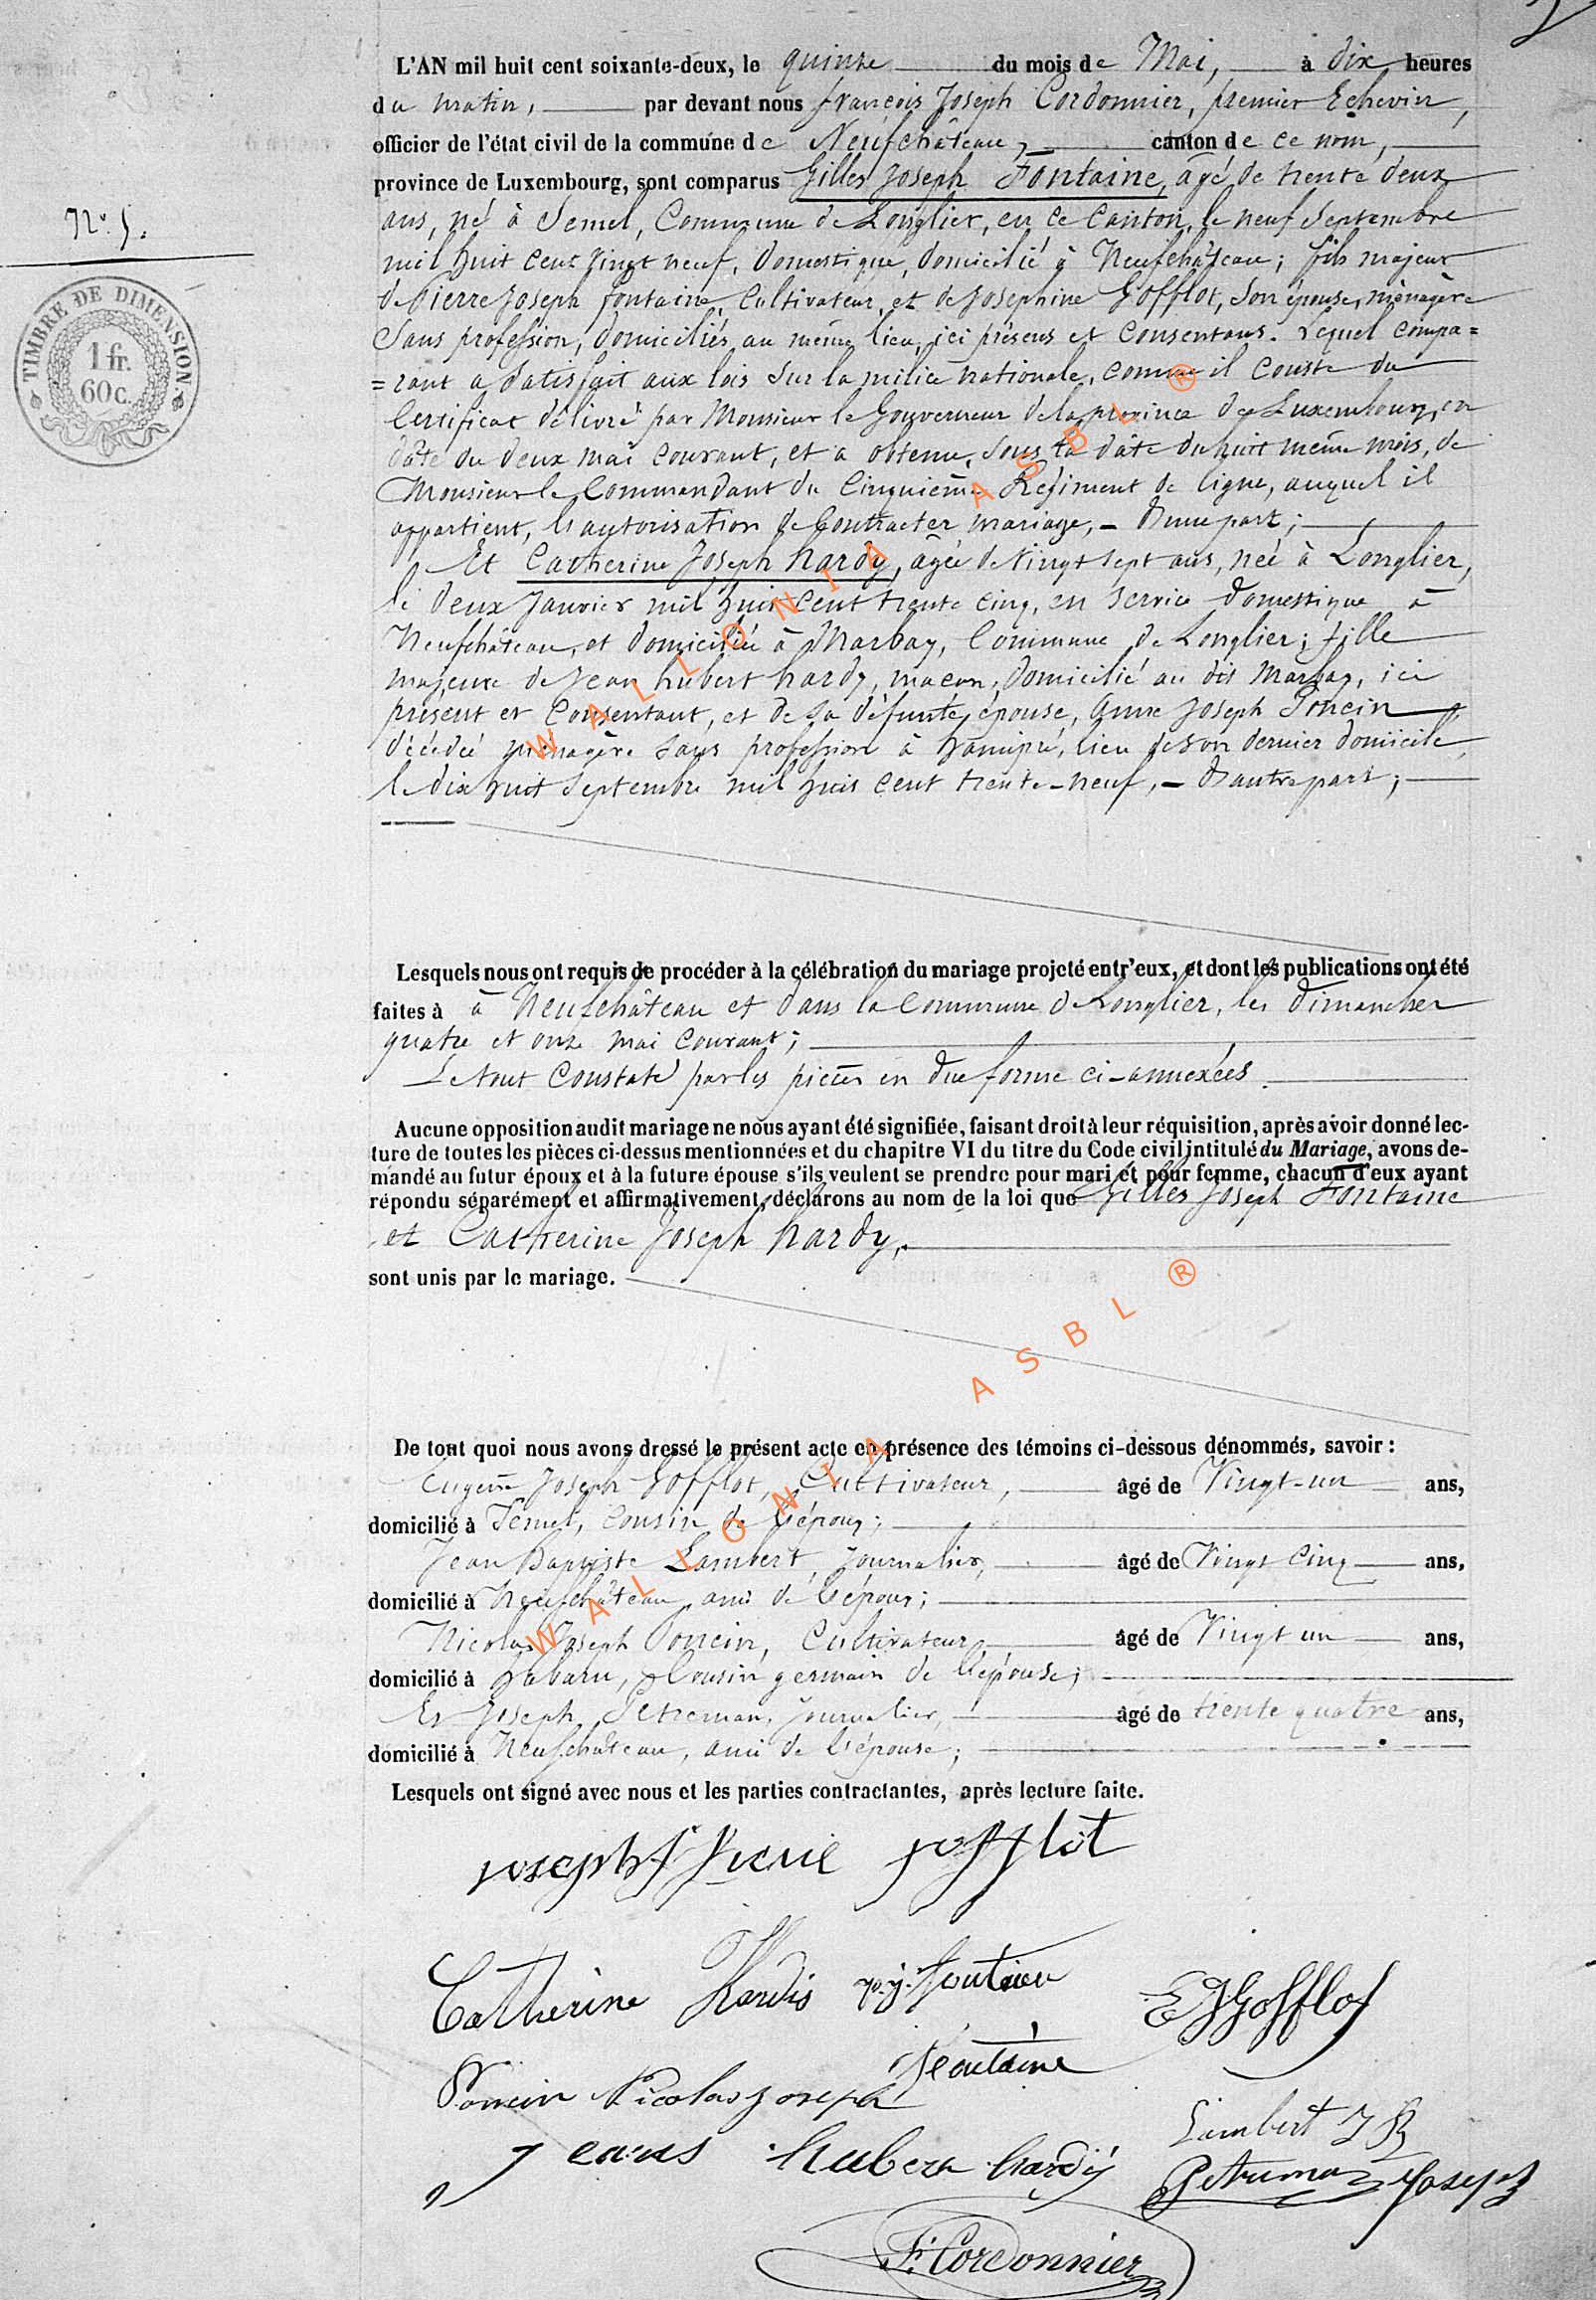 L'AN mil huit cent soixante-deux, le quinze du mois de Mai, à dix heures
du matin, par devant nous François Joseph Cordonnier, premier Echevin,
officier de l'état civil de la commune de Neufchâteau, canton de ce nom,
province de Luxembourg, sont comparus Gilles Joseph Fontaine, âgé de trente deux
N° 5.
ans, né à Semel, Commune de Longlier, en ce Canton, le neuf Septembre
mil huit cent vingt neuf, domestique, domicilié à Neufchâteau; fils majeur
de Pierre Joseph Fontaine, Cultivateur, et de Josephine Gofflot, son épouse, ménagère
TIMBRE DE DIMENSION.
1 fr.
60 c.
Sans profession, domiciliés au même lieu, ici présens et consentans. Lequel compa=
=rant a satisfait aux lois sur la milice nationale, comme il conste du
Certificat délivré par Monsieur le Gouverneur de la province de Luxembourg, en
date du deux mai courant, et a obtenu, sous la date du huit même mois, de
Monsieur le Commandant du Cinquième Régiment de ligne, auquel il
appartient, l'autorisation de Contracter mariage, – d'une part;
Et Catherine Joseph hardy, âgée de vingt sept ans, née à Longlier,
le deux Janvier mil huit cent trente cinq, en service domestique à
Neufchâteau, et domiciliée à Marbay, Commune de Longlier; fille
majeure de Jean hubert hardy, maçon, domicilié au dit Marbay, ici
présent et Consentant, et de sa défunte épouse, Anne Joseph Poncin
décédée ménagère sans profession à hamipré, lieu de son dernier domicile,
le dix huit Septembre mil huit cent trente-neuf, – d'autre part;
Lesquels nous ont requis de procéder à la célébration du mariage projeté entr'eux, et dont les publications ont été
faites à à Neufchâteau et dans la Commune de Longlier, les dimanches
quatre et onze mai courant;
Le tout constaté par les pièces en due forme ci-annexées
Aucune opposition audit mariage ne nous ayant été signifiée, faisant droit à leur réquisition, après avoir donné lec-
ture de toutes les pièces ci-dessus mentionnées et du chapitre VI du titre du Code civil intitulé du Mariage, avons de-
mandé au futur époux et à la future épouse s'ils veulent se prendre pour mari et pour femme, chacun d'eux ayant
répondu séparément et affirmativement, déclarons au nom de la loi que Gilles Joseph Fontaine
et Catherine Joseph hardy,
sont unis par le mariage.
De tout quoi nous avons dressé le présent acte en présence des témoins ci-dessous dénommés, savoir :
Eugène Joseph Gofflot, Cultivateur, âgé de Vingt-un ans,
domicilié à Semel, cousin de l'époux;
Jean Baptiste Lambert, Journalier, âgé de Vingt Cinq ans,
domicilié à Neufchâteau, ami de l'époux;
Nicolas Joseph Poncin, Cultivateur, âgé de Vingt un ans,
domicilié à habaru, Cousin germain de l'épouse;
Et Joseph Petreman, Journalier, âgé de trente quatre ans,
domicilié à Neufchâteau, ami de l'épouse;
Lesquels ont signé avec nous et les parties contractantes, après lecture faite.
joseph gofflot
Catherine Hardis p. j. fontaine EJGofflot
fontaine
Poncin Nicolas joseph
Lambert J B
jeans hubert hardÿ
Petreman Joseph
F. Cordonnier
WALLONIA ASBL ®
WALLONIA ASBL ®